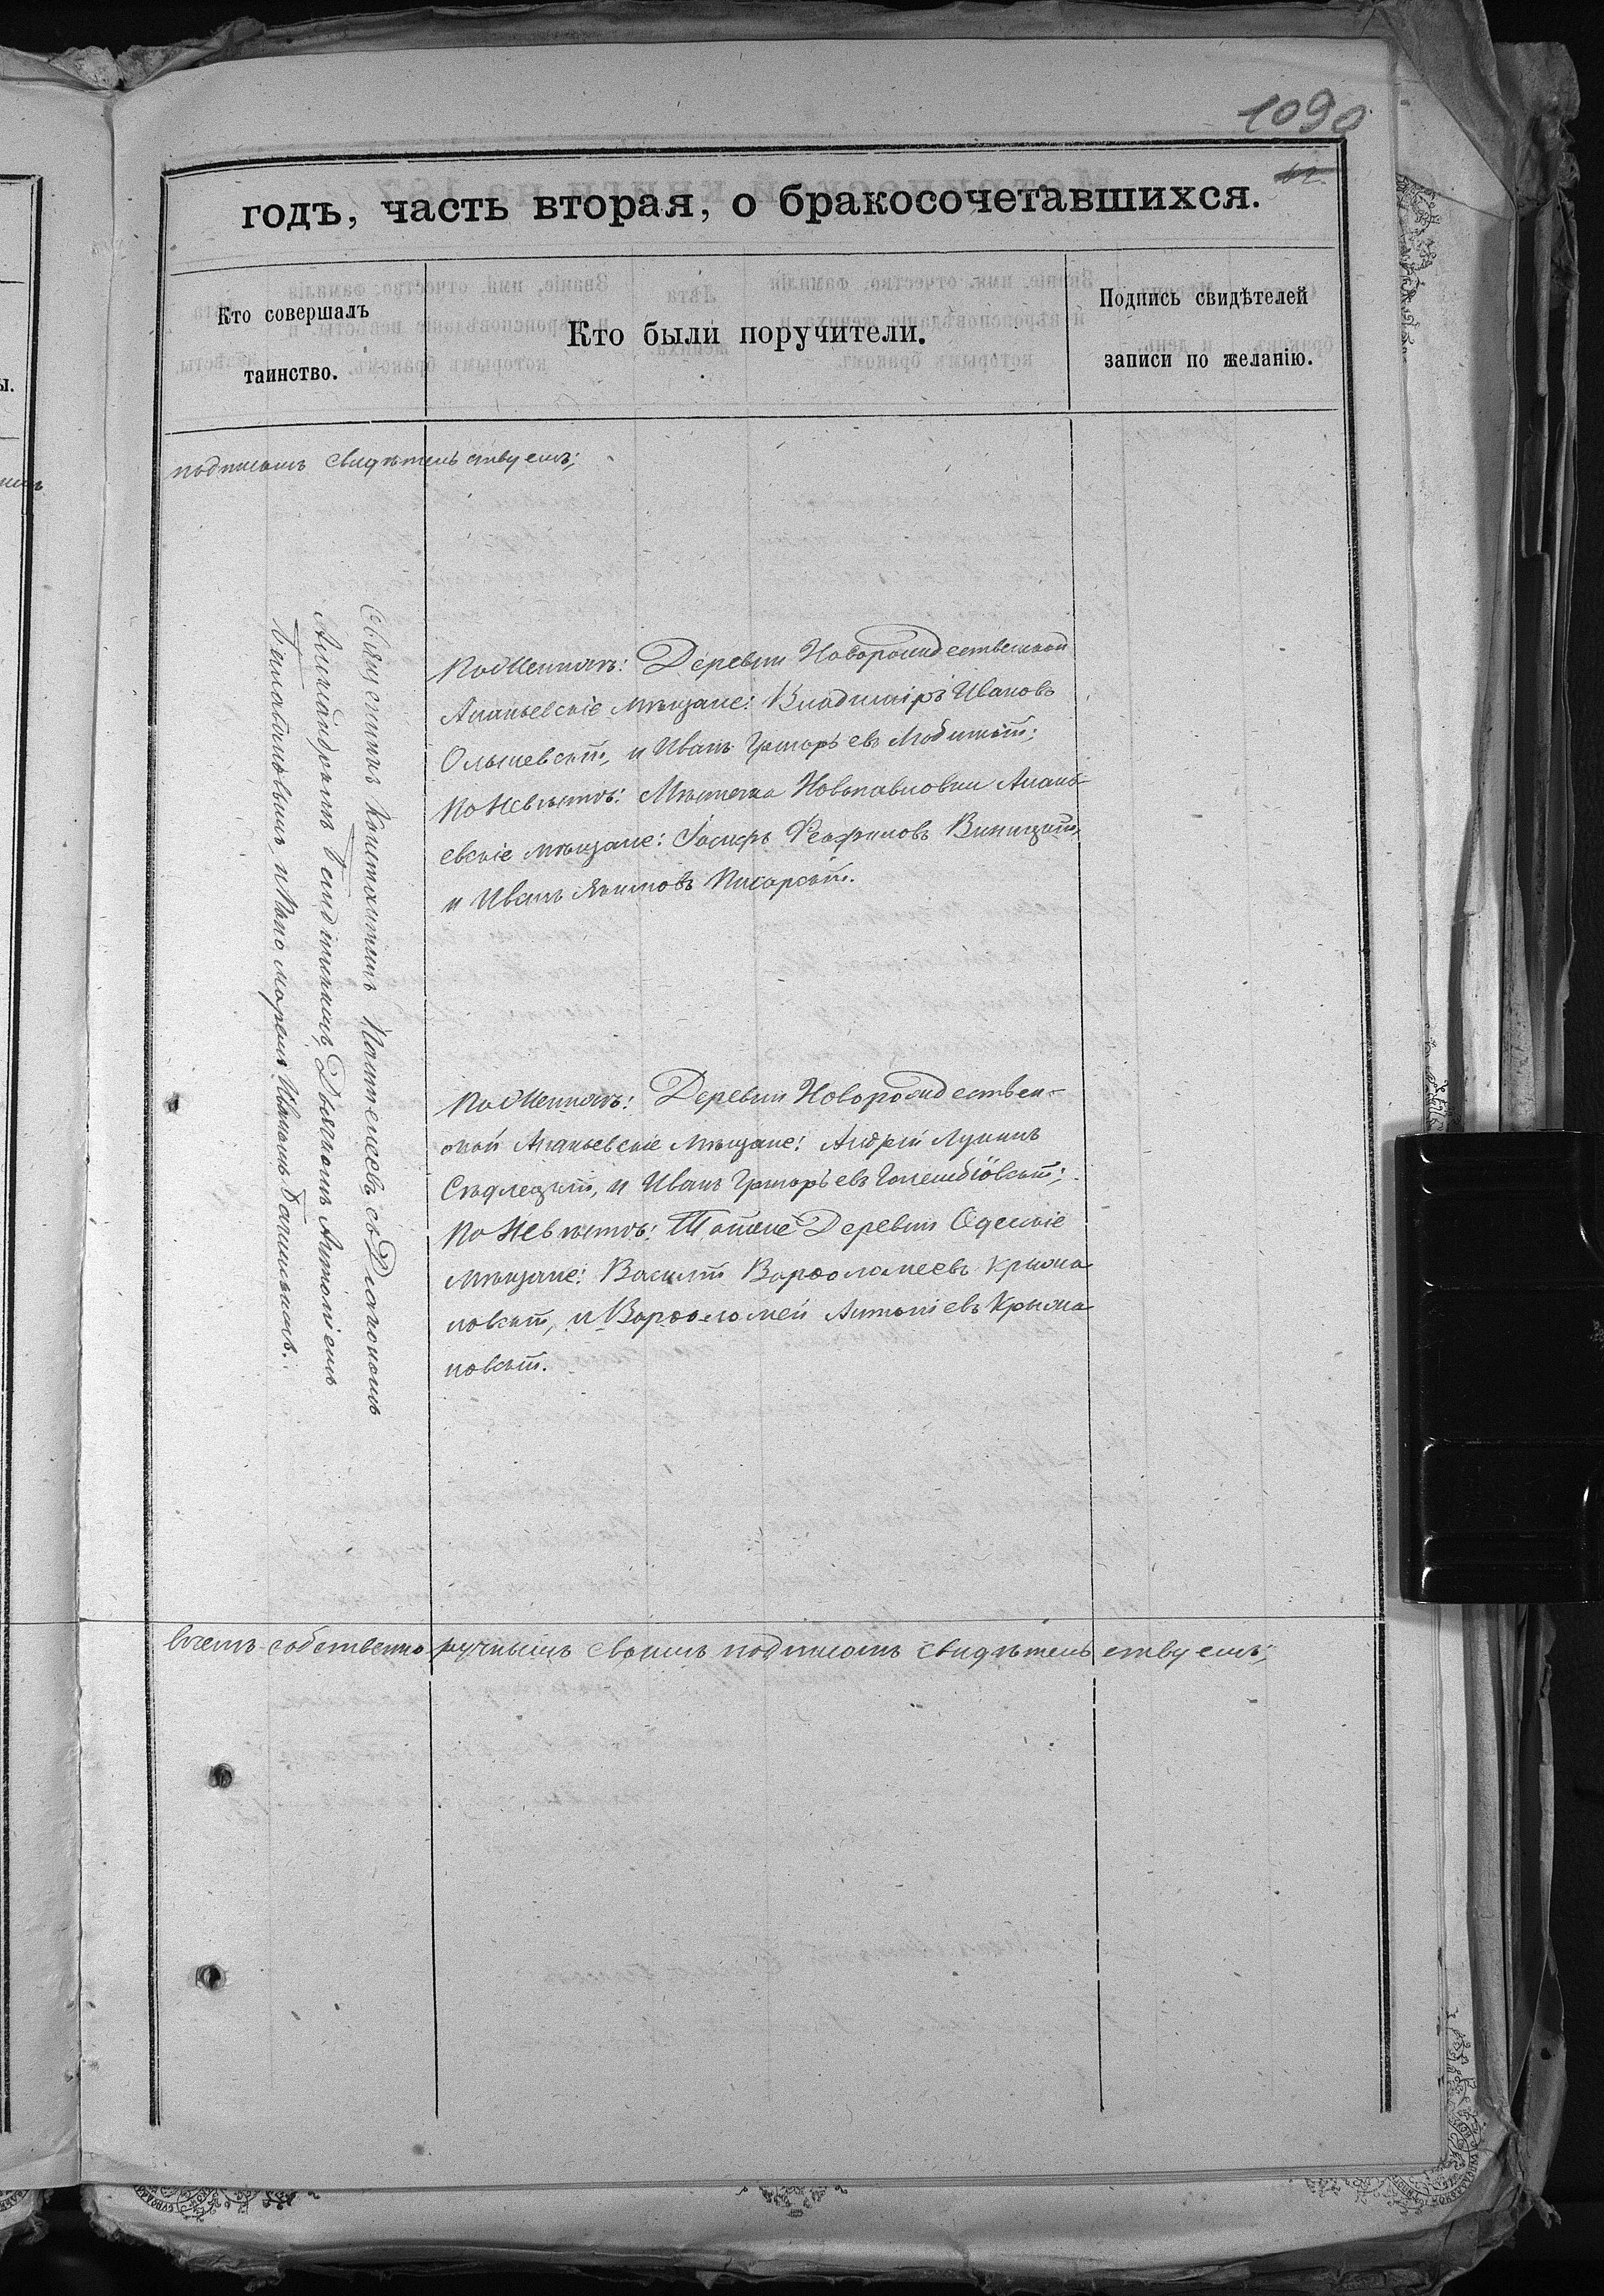 1090
годъ, часть вторая, о бракосочетавшихся.
Кто совершалъ
таинство.
Кто были поручители.
Подпись свидѣтелей
записи по желанію.
подписомъ свидѣтельствуемъ;
Священникъ Константинъ Пантелеевъ съ Діакономъ
Александромъ Дьячкомъ Антоніемъ
и Понамаремъ Иваномъ
По Женихѣ: Деревни Новорождественской
Ананьевскіе мѣщане: Владиміръ Ивановъ
Ольшевскій, и Иванъ Григорьевъ Любицкій;
По Невѣстѣ: Мѣстечка Новопавловки Анань-
евскіе мѣщане: Іосифъ Феофиловъ Виницкій,
и Иванъ Якимовъ Писарскій.
По Женихѣ: Деревни Новорождествен-
ской Ананьевскіе Мѣщане: Андрей Лукинъ
Сѣдлецкій, и Иванъ Григорьевъ Голембіовскій;
По Невѣстѣ: Деревни Одескіе
Мѣщане: Василій Варфоломеевъ Крыжа-
новскій, и Варфоломей Антоніевъ Крыжа-
новскій.
въ чемъ собственно ручнымъ своимъ подписомъ свидѣтельствуемъ;